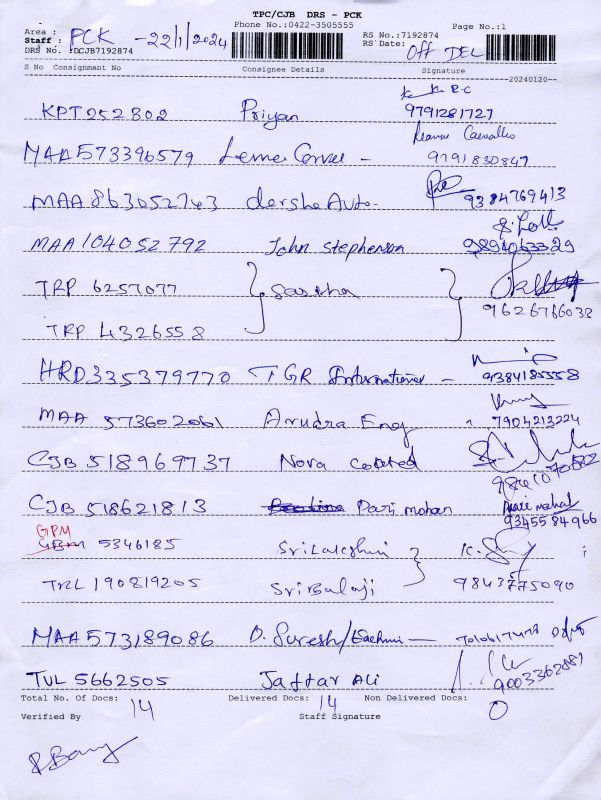 TPC/CJB DRS - PCK
Phone No.:0422-3505555
Page No.:1
Area :
Staff : PCK - 22/1/2024
RS No.:7192874
DRS No. :DCJB7192874
RS Date: Off DEL
S No Consignment No Consignee Details Signature
20240120
KPT252802 Priyan 9791281727
MAA573396579 9791830847
MAA863052743 dersha Auto. 9384769413
MAA104052792 John Stephenson 9894063329
TRP 6257077 9626766038
TRP 4326558
HRD335379770 TGR International - 9384185558
MAA 573602061 Arudra Eng 7904213224
CJB 518969737 Nova Coated
CJB 518621813 Pari mohan 9345584966
GPM 5346185 Sri Lakshmi
TRL 190819205 Sri Balaji 9843775090
MAA573189086 D. Suresh/
TUL 5662505 Jaffar Ali 9003362881
Total No. Of Docs: 14 Delivered Docs: 14 Non Delivered Docs: 0
Verified By Staff Signature